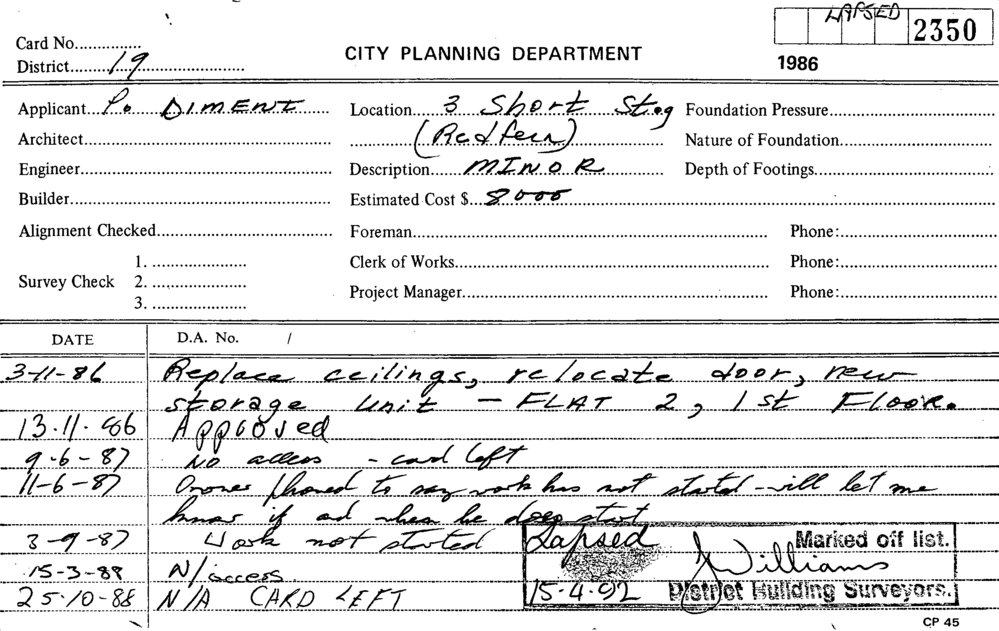 LAPSED
2350
Card No...............
CITY PLANNING DEPARTMENT
District 19
1986
Applicant P. DIMENT Location 3 Short St., Foundation Pressure
Architect (Redfern) Nature of Foundation
Engineer Description MINOR Depth of Footings
Builder Estimated Cost $ 8000
Alignment Checked Foreman Phone:
1. Clerk of Works Phone:
Survey Check 2.
Project Manager Phone:
3.
DATE D.A. No. /
3-11-86 Replace ceilings, relocate door, new
storage unit - FLAT 2, 1st Floor.
13.11.86 Approved
9-6-87 No access - card left
11-6-87 Owner phoned to say work has not started - will let me
know if and when he does start
3-9-87 Work not started Lapsed Marked off list.
15-3-88 N/access. Williams
25-10-88 N/A CARD LEFT 15.4.92 District Building Surveyors.
CP 45